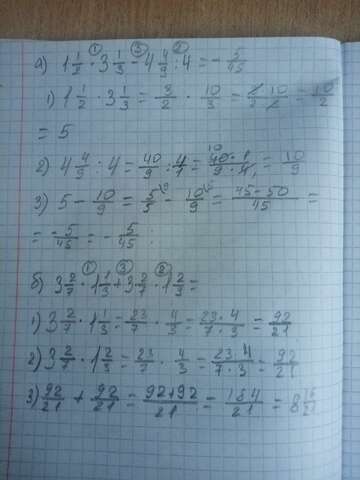 а) 1 1/2 · 3 1/3 − 4 4/9 : 4 = − 5/45
① ③ ②
1) 1 1/2 · 3 1/3 = 3/2 · 10/3 = 10/2 =
= 5
2) 4 4/9 : 4 = 40/9 : 4/1 = 40·1/9·4 = 10/9
3) 5 − 10/9 = 5/5 − 10/9 = 45−50/45 =
= −5/45 = − 5/45
б) 3 2/7 · 1 1/3 + 3 2/7 · 1 2/3 =
① ③ ②
1) 3 2/7 · 1 1/3 = 23/7 · 4/3 = 23·4/7·3 = 92/21
2) 3 2/7 · 1 2/3 = 23/7 · 4/3 = 23·4/7·3 = 92/21
3) 92/21 + 92/21 = 92+92/21 = 184/21 = 8 16/21